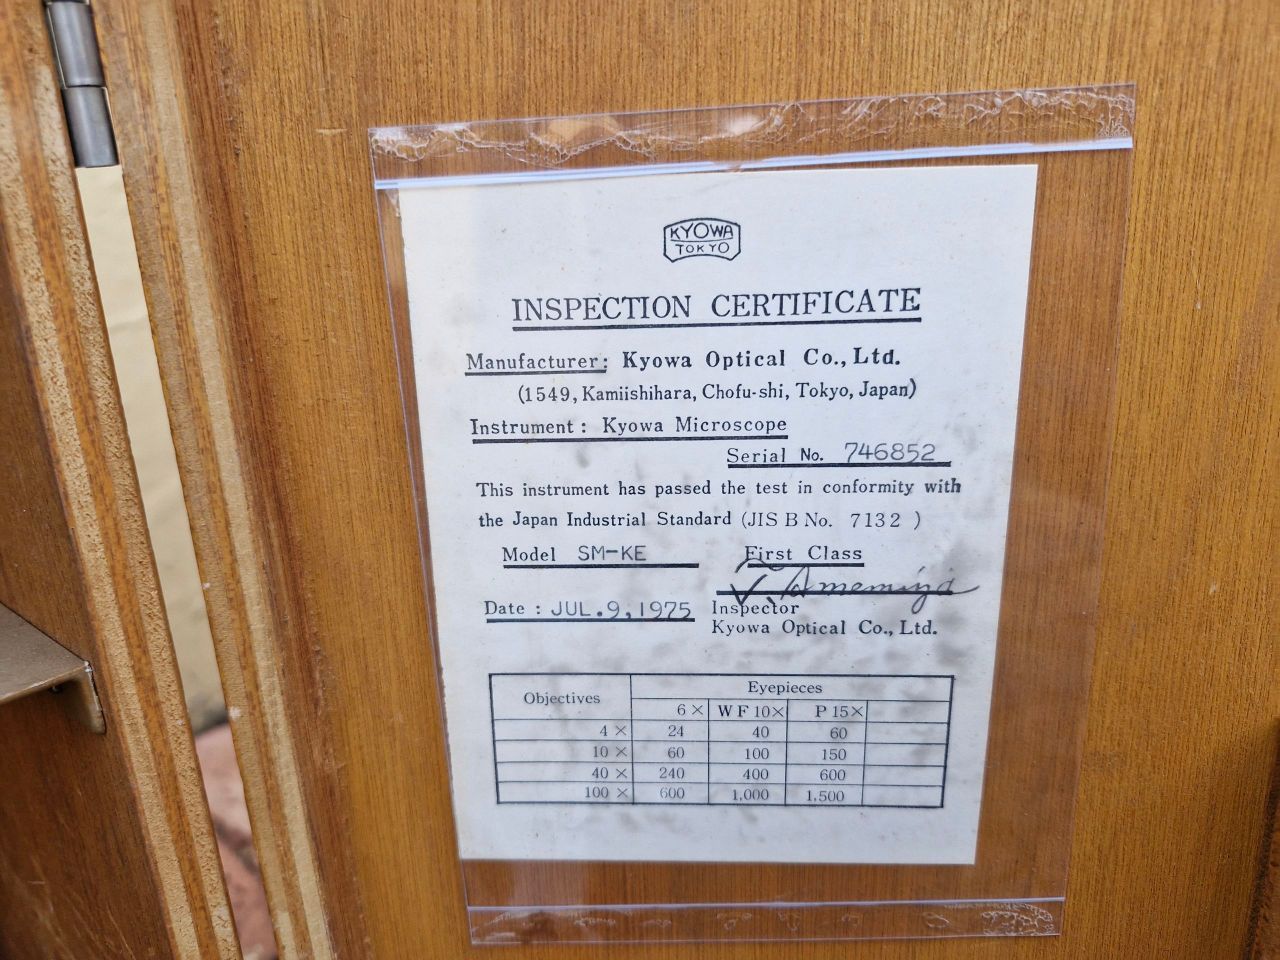 KYOWA
TOKYO
INSPECTION CERTIFICATE
Manufacturer: Kyowa Optical Co., Ltd.
(1549, Kamiishihara, Chofu-shi, Tokyo, Japan)
Instrument: Kyowa Microscope
Serial No. 746852
This instrument has passed the test in conformity with
the Japan Industrial Standard (JIS B No. 7132 )
Model SM-KE First Class
Amemiya
Date : JUL.9,1975 Inspector
Kyowa Optical Co., Ltd.
Objectives Eyepieces
6× WF10× P15×
4× 24 40 60
10× 60 100 150
40× 240 400 600
100× 600 1,000 1,500